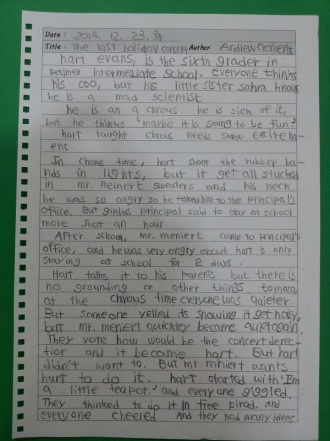 Date : 2014. 12. 23.
Title : The last holiday concert Author: Andrew Clement
hart evans, is the sixth grader in
palmer Intermediate School. everyone thinks
his coo, but his little sister sahra knows
he is a mad scientist.
he is an a chrous. he is sick of it,
but he thinks "maybe it is going to be fun?"
hart taught chrous needs some excitem-
ent.
In chorus time, hart shoot the rubber ba-
nds in lights, but it get all stucked
in mr. meinert sweaters and his neck.
he was so angry so he him to the principal's
office. But principal said to stay at school
more Just an hour
After school, mr. meniert came to principal's
office, and he was very angry about hart is only
staying at school for 2 days.
Hart talks it to his parents but there is
no grounding or other things
at the chrous time everyone was quieter.
But someone yelled its snowing it get noisy,
but mr. meniert quickley became quiet again,
They vote how would be the concert derec-
tior and it became hart. But hart
didn't want to. But mr mniert wants
hart to do it. hart started with "I'm
a little teapot." and everyone giggled.
They thinked to do it in free pirod. and
everyone cheered And they had many ideas